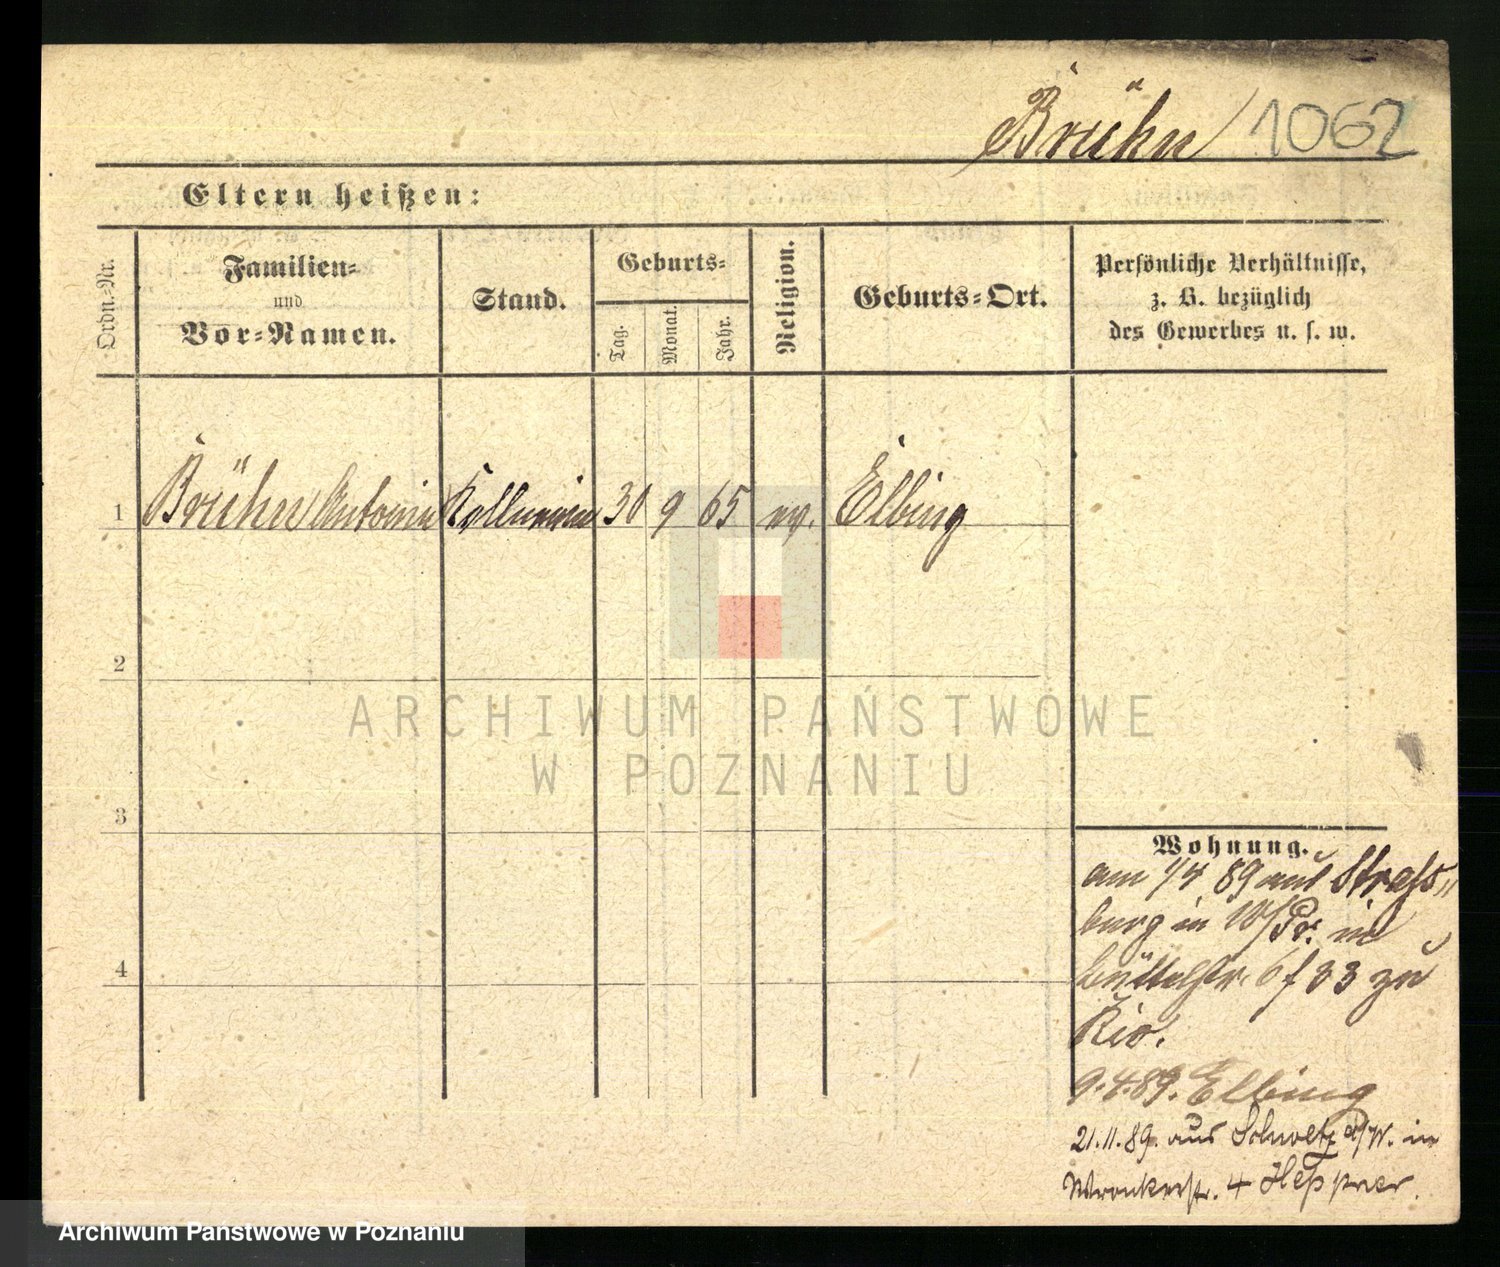 Brühn 1062
Eltern heißen:
Ordn.-Nr.
Familien-
und
Vor-Namen.
Stand.
Geburts-
Tag.
Monat.
Jahr.
Religion.
Geburts-Ort.
Persönliche Verhältnisse,
z. B. bezüglich
des Gewerbes u. s. w.
1 Brühn Antonie Kellnerin 30 9 65 ev. Elbing
2
3
4
Wohnung.
am 1/4 89 aus Strass-
burg in W/Pr. in
Büttelstr. 6 f 33 zu
9.4.89. Elbing
21.11.89. aus Schwetz a/W. in
Wronkerstr. 4 Heppner.
ARCHIWUM PAŃSTWOWE
W POZNANIU
Archiwum Państwowe w Poznaniu